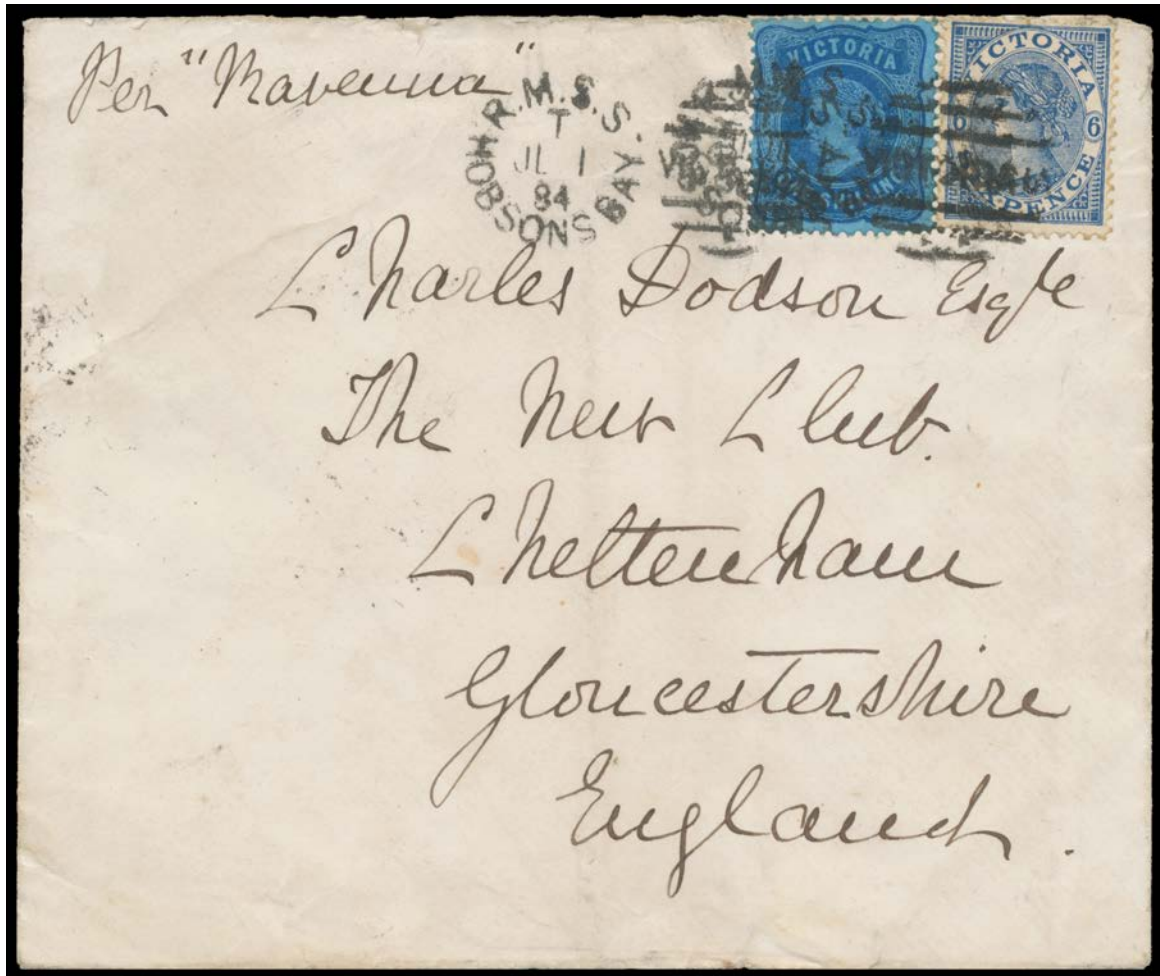 Per "Ravenna"
R.M.S.S.
T
JL 1
84
HOBSONS BAY.
VICTORIA
VICTORIA
6 6
SIXPENCE
Charles Dodson Esqre
The New Club.
Cheltenham
Gloucestershire
England.